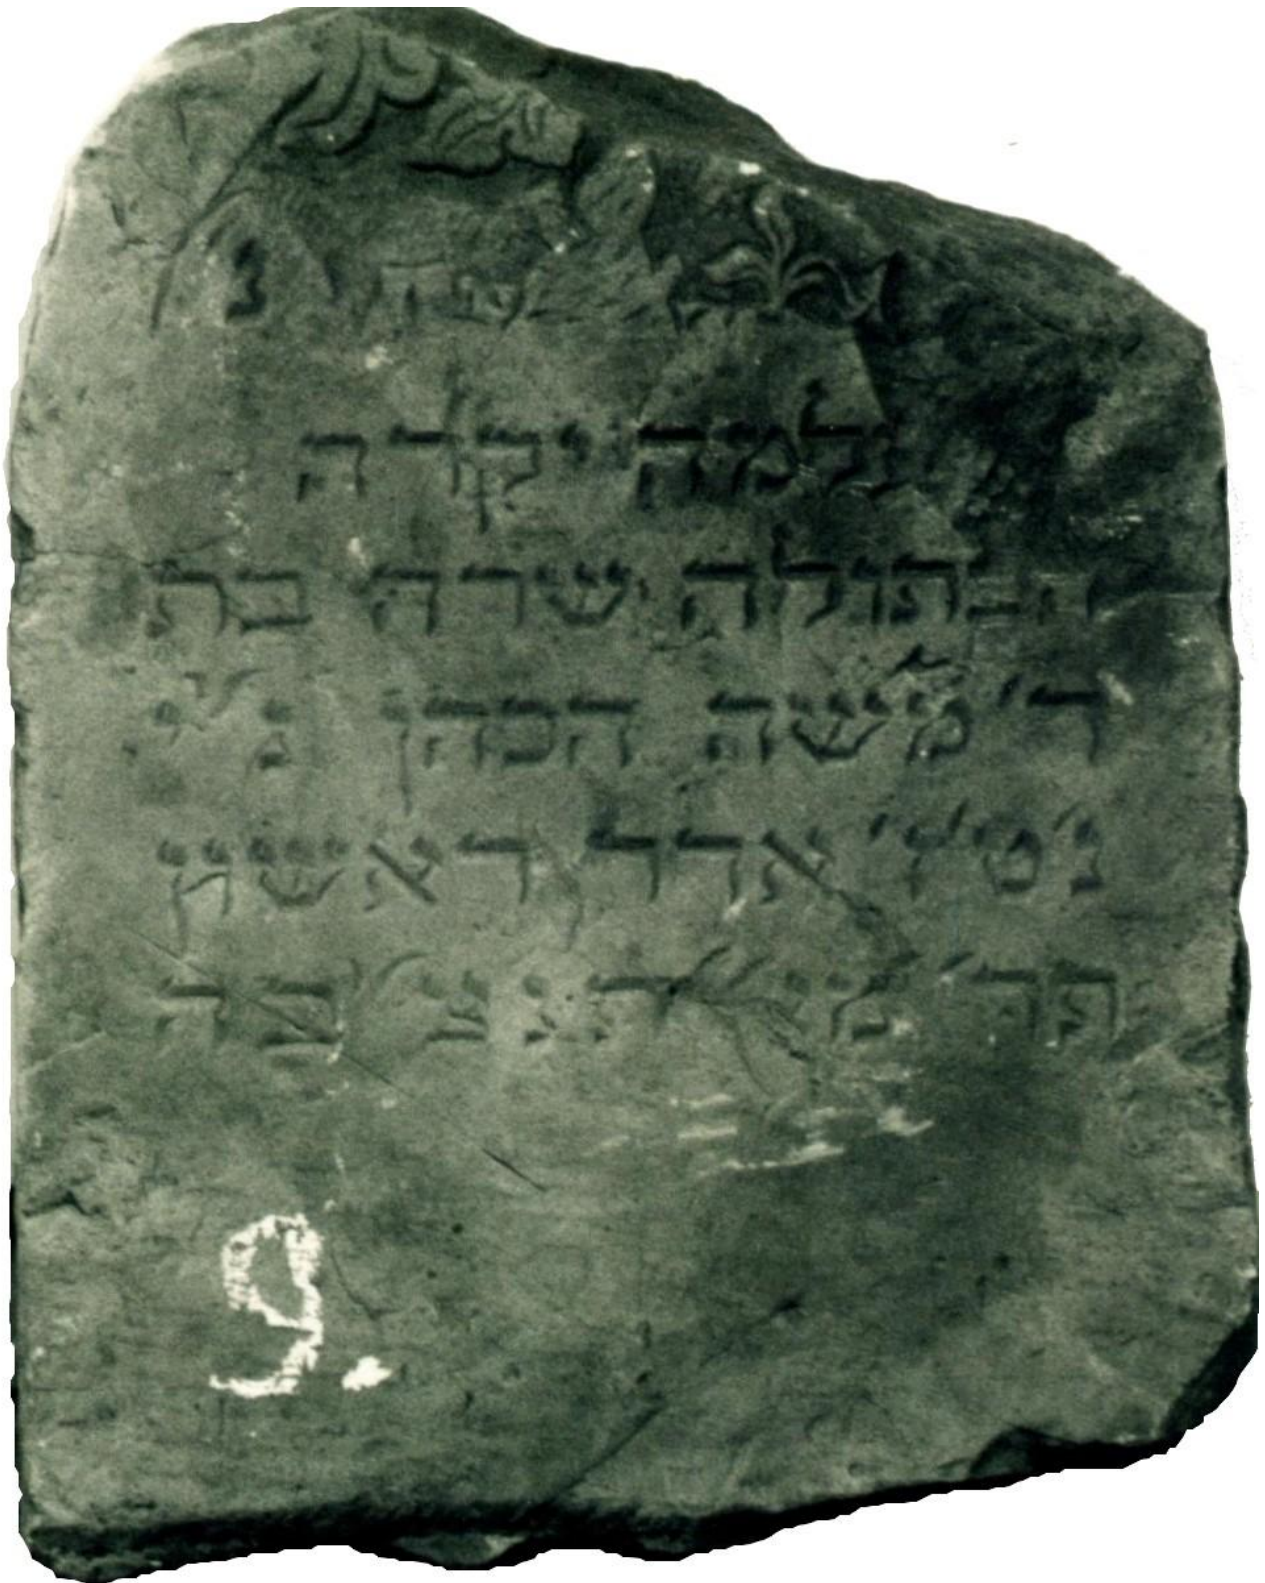 פה נ
עלמה יקרה
הבתולה שרה בת
ר' משה הכהן נ' י'
ג' ט'ז' אדר ראשון
תנצ'בה
9.